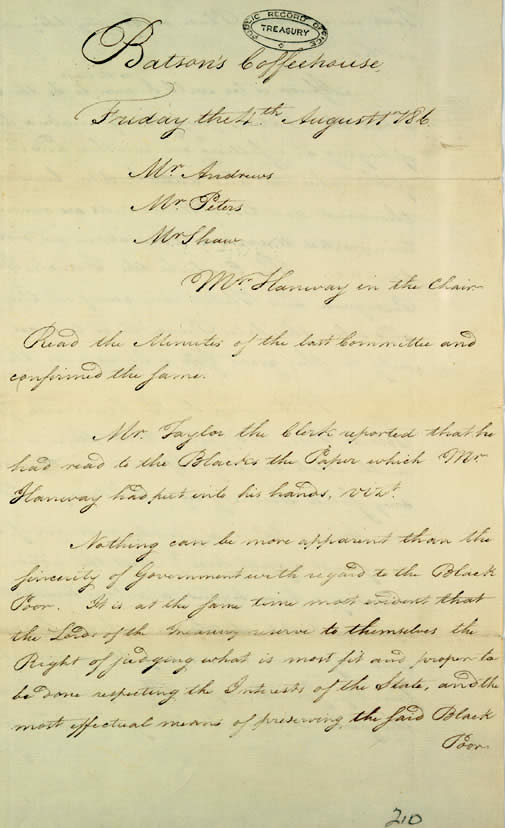 PUBLIC RECORD OFFICE
TREASURY
Batson's Coffeehouse
Friday the 4th August 1786
Mr. Andrews
Mr. Peters
Mr Shaw
Mr. Hanway in the Chair
Read the Minutes of the last Committee and
confirmed the same.
Mr. Taylor the Clerk reported that he
had read to the Blacks the Paper which Mr.
Hanway had put into his hands, vizt.
Nothing can be more apparent than the
sincerity of Government with regard to the Black
Poor. It is at the same time most evident that
the Lords of the Treasury reserve to themselves the
Right of judging what is most fit and proper to
be done respecting the Interests of the State, and the
most effectual means of preserving the said Black
Poor
210